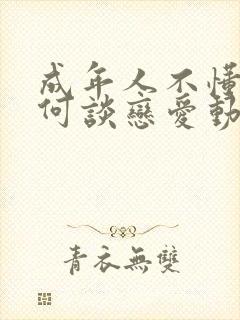 成年人不懂
何談戀愛動
青衣無雙